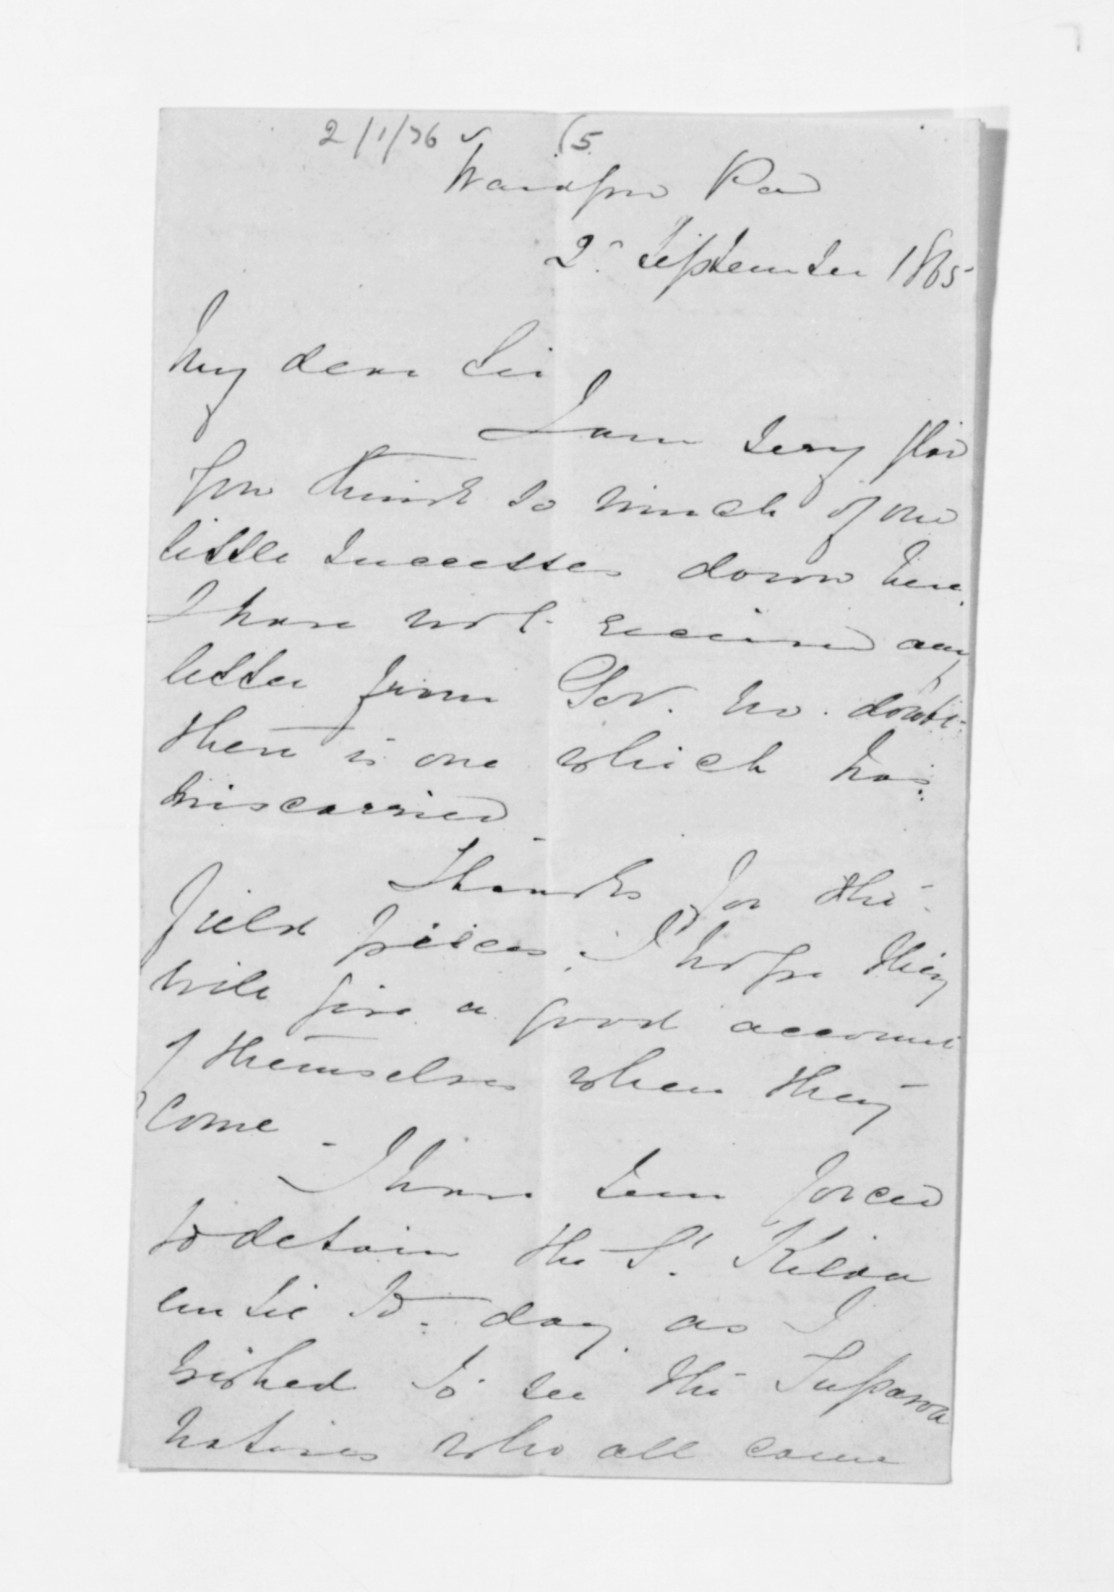 2/1/76 (5
Waiapu Pa
2d September 1865
My dear Sir
I am very glad
you think so much of our
little successes down here.
I have not received any
letter from Gov. no doubt
there is one which has
miscarried
Thanks for the
field pieces. I hope they
will give a good account
of themselves when they
come -
I have been forced
to detain the St. Kilda
until to day as I
wished to see the Tuparoa
natives who all came